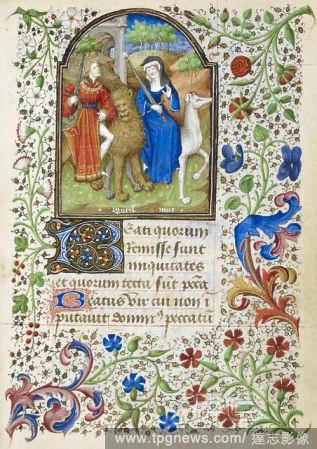 Beati quorum
remisse sunt
iniquitates
et quorum tecta sūt pecca
Beatus vir cui non i
putauit domin' peccatū
www.tpgnews.com/ 達志影像